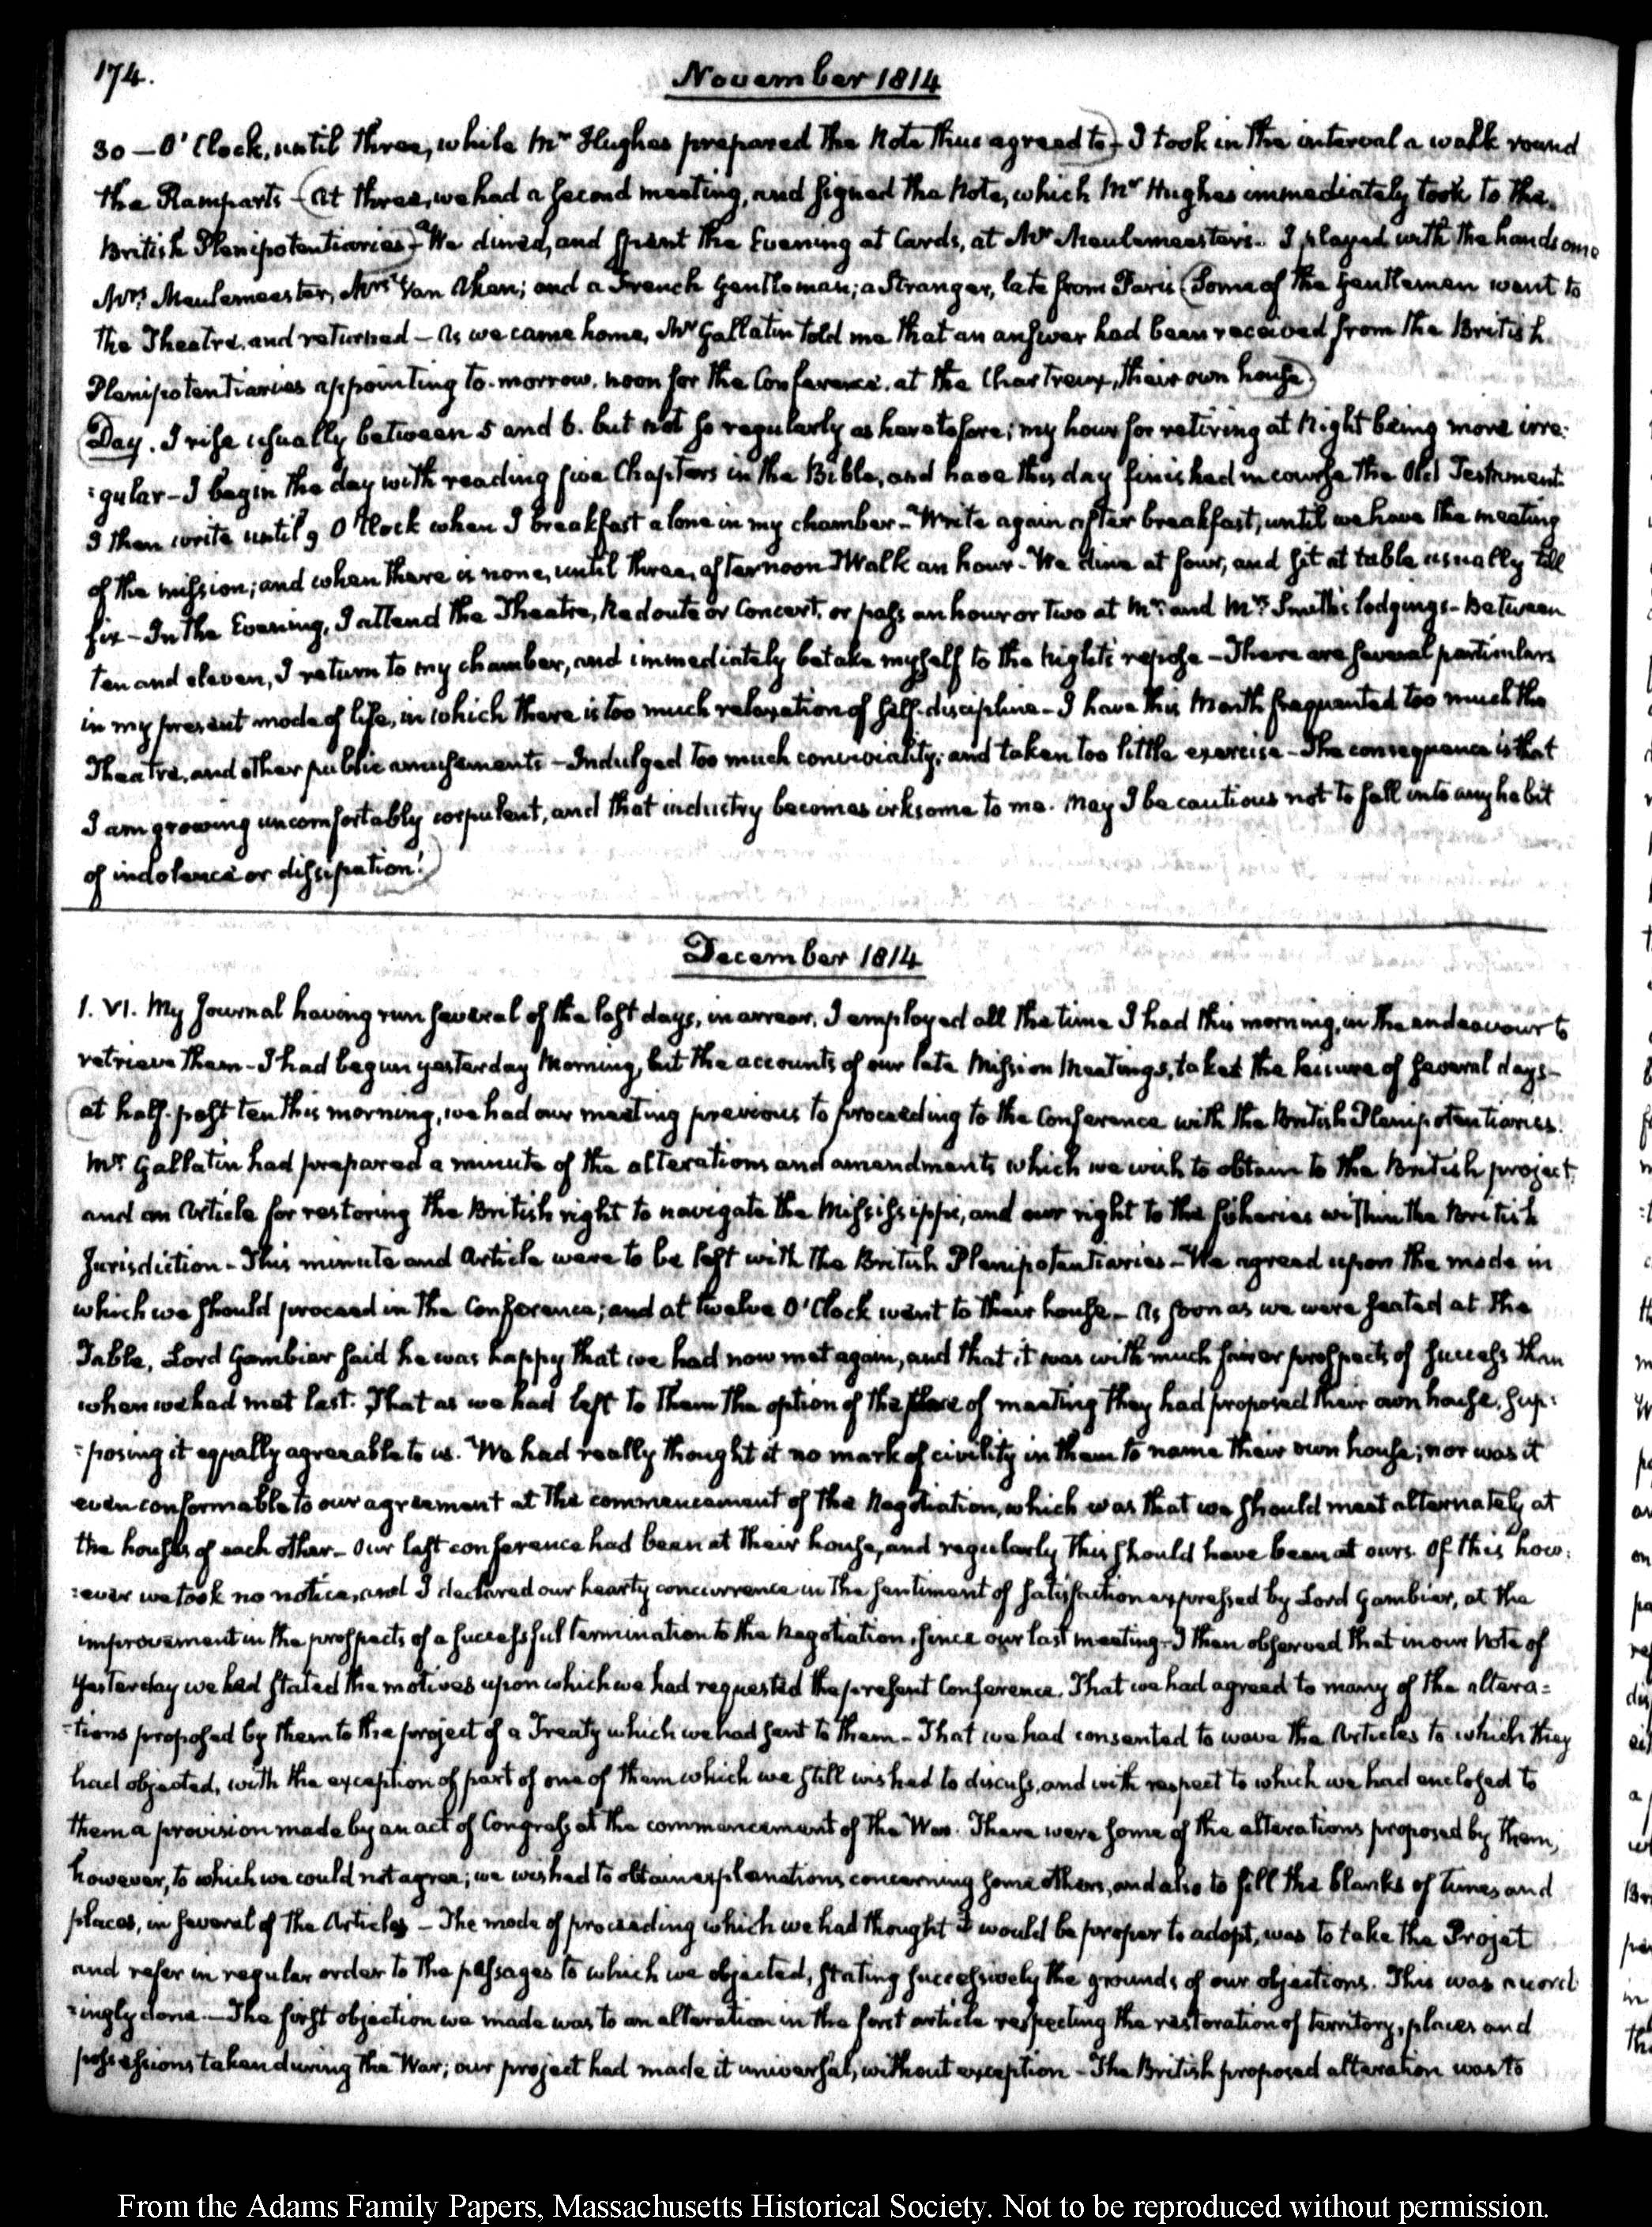 174.
November 1814
30 — O'Clock, until three, while Mr Hughes prepared the Note thus agreed to) - I took in the interval a walk round
the Ramparts - (At three, we had a second meeting, and signed the Note, which Mr Hughes immediately took to the
British Plenipotentiaries) - We dined, and spent the Evening at Cards, at Mr Meulemeester's. I played with the handsome
Mrs Meulemeester, Mrs Van Aken; and a French Gentleman; a Stranger, late from Paris (Some of the Gentlemen went to
the Theatre, and returned - As we came home, Mr Gallatin told me that an answer had been received from the British
Plenipotentiaries appointing to-morrow, noon for the Conference, at the Chartreux, their own house.)
(Day. I rise usually between 5 and 6. but not so regularly as heretofore; my hour for retiring at Night being more irre:
:gular - I begin the day with reading five Chapters in the Bible, and have this day finished in course the Old Testament.
I then write until 9 O'Clock when I breakfast alone in my chamber - Write again after breakfast, until we have the meeting
of the mission; and when there is none, until three, afternoon I Walk an hour - We dine at four, and sit at table usually till
six - In the Evening, I attend the Theatre, Redoute or Concert, or pass an hour or two at Mr and Mrs Smith's lodgings - Between
ten and eleven, I return to my chamber, and immediately betake myself to the night's repose - There are several particulars
in my present mode of life, in which there is too much relaxation of self-discipline - I have this Month frequented too much the
Theatre, and other public amusements - Indulged too much conviviality, and taken too little exercise - The consequence is that
I am growing uncomfortably corpulent, and that industry becomes irksome to me. May I be cautious not to fall into any habit
of indolence or dissipation!)
December 1814
1. VI. My Journal having run several of the last days, in arrear, I employed all the time I had this morning, in the endeavour to
retrieve them - I had begun yesterday Morning, but the accounts of our late Mission Meetings, takes the leisure of several days -
(at half-past ten this morning, we had our meeting previous to proceeding to the Conference with the British Plenipotentiaries.
Mr Gallatin had prepared a minute of the alterations and amendments which we wish to obtain to the British project,
and an Article for restoring the British right to navigate the Mississippi, and our right to the fisheries within the British
Jurisdiction - This minute and Article were to be left with the British Plenipotentiaries - We agreed upon the mode in
which we should proceed in the Conference; and at twelve O'Clock went to their house - As soon as we were seated at the
Table, Lord Gambier said he was happy that we had now met again, and that it was with much fairer prospects of success than
when we had met last. That as we had left to them the option of the place of meeting they had proposed their own house, sup:
:posing it equally agreeable to us. We had really thought it no mark of civility in them to name their own house; nor was it
even conformable to our agreement at the commencement of the Negotiation, which was that we should meet alternately at
the houses of each other - Our last conference had been at their house, and regularly this should have been at ours. Of this how:
:ever we took no notice, and I declared our hearty concurrence in the sentiment of satisfaction expressed by Lord Gambier, at the
improvement in the prospects of a successful termination to the Negotiation, since our last meeting - I then observed that in our Note of
yesterday we had stated the motives upon which we had requested the present Conference. That we had agreed to many of the altera=
=tions proposed by them to the project of a Treaty which we had sent to them - That we had consented to wave the Articles to which they
had objected, with the exception of part of one of them which we still wished to discuss, and with respect to which we had enclosed to
them a provision made by an act of Congress at the commencement of the War. There were some of the alterations proposed by them,
however, to which we could not agree; we wished to obtain explanations concerning some others, and also to fill the blanks of times and
places, in several of the Articles - The mode of proceeding which we had thought it would be proper to adopt, was to take the Projet
and refer in regular order to the passages to which we objected, stating successively the grounds of our objections. This was accord
:ingly done - The first objection we made was to an alteration in the first article respecting the restoration of territory, places and
possessions taken during the War; our project had made it universal, without exception - The British proposed alteration was to
From the Adams Family Papers, Massachusetts Historical Society. Not to be reproduced without permission.